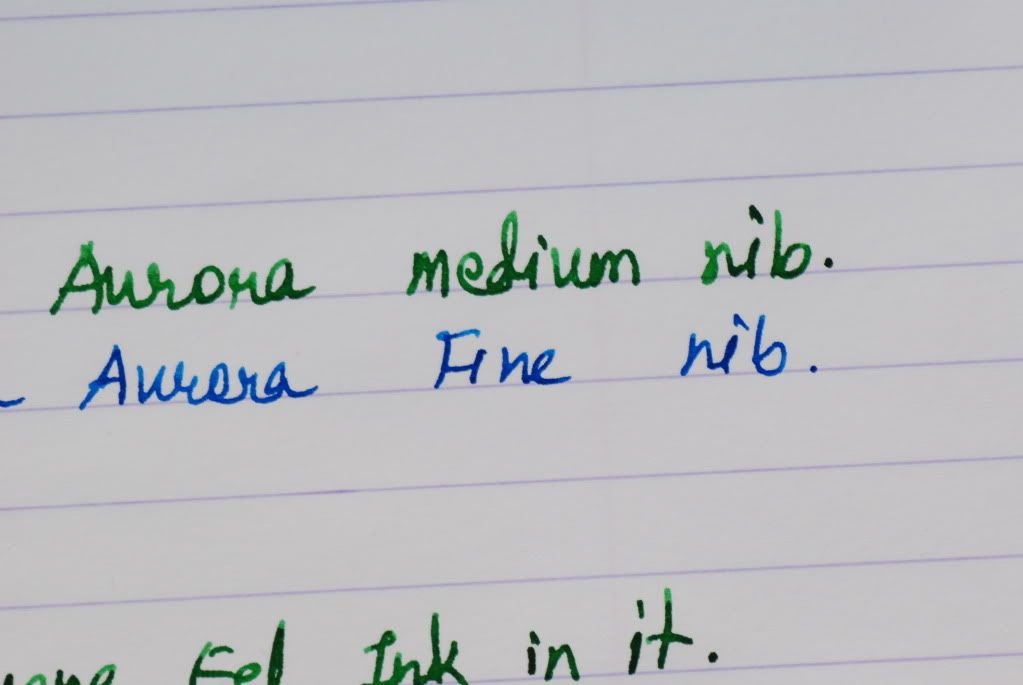 Aurora medium nib.
Aurora Fine nib.
Eel Ink in it.